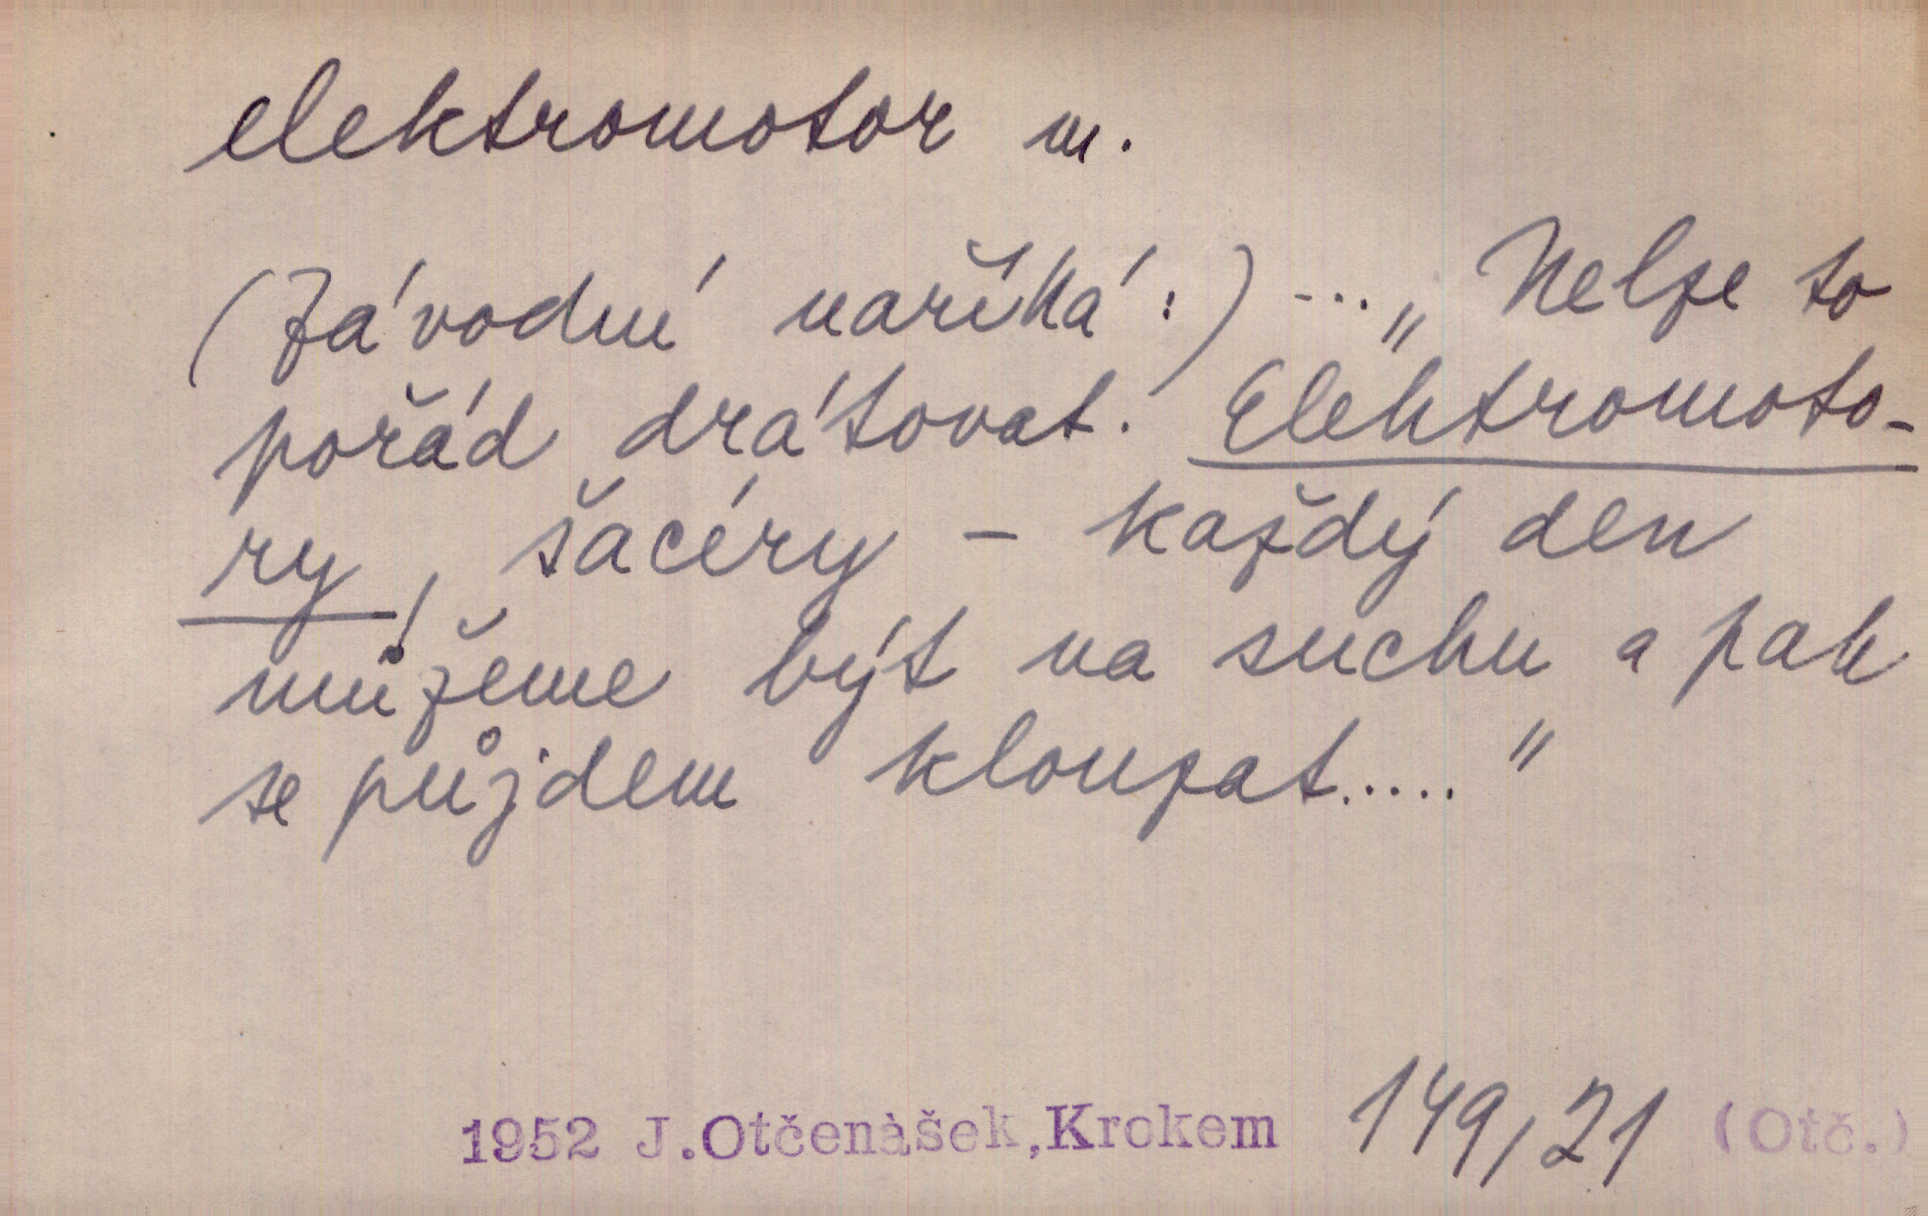 elektromotor m.
(Závodní naříká:) ... „Nelze to
pořád drátovat. Elektromoto-
ry, šacéry – každý den
můžeme být na suchu a pak
se půjdem klouzat....."
1952 J.Otčenášek,Krokem 149,21 (Otč.)